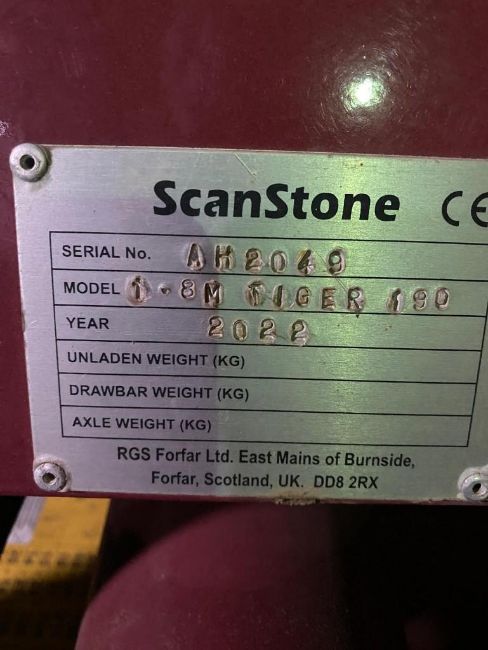 ScanStone CE
SERIAL No. AH2049
MODEL 1.8M TIGER 190
YEAR 2022
UNLADEN WEIGHT (KG)
DRAWBAR WEIGHT (KG)
AXLE WEIGHT (KG)
RGS Forfar Ltd. East Mains of Burnside,
Forfar, Scotland, UK. DD8 2RX